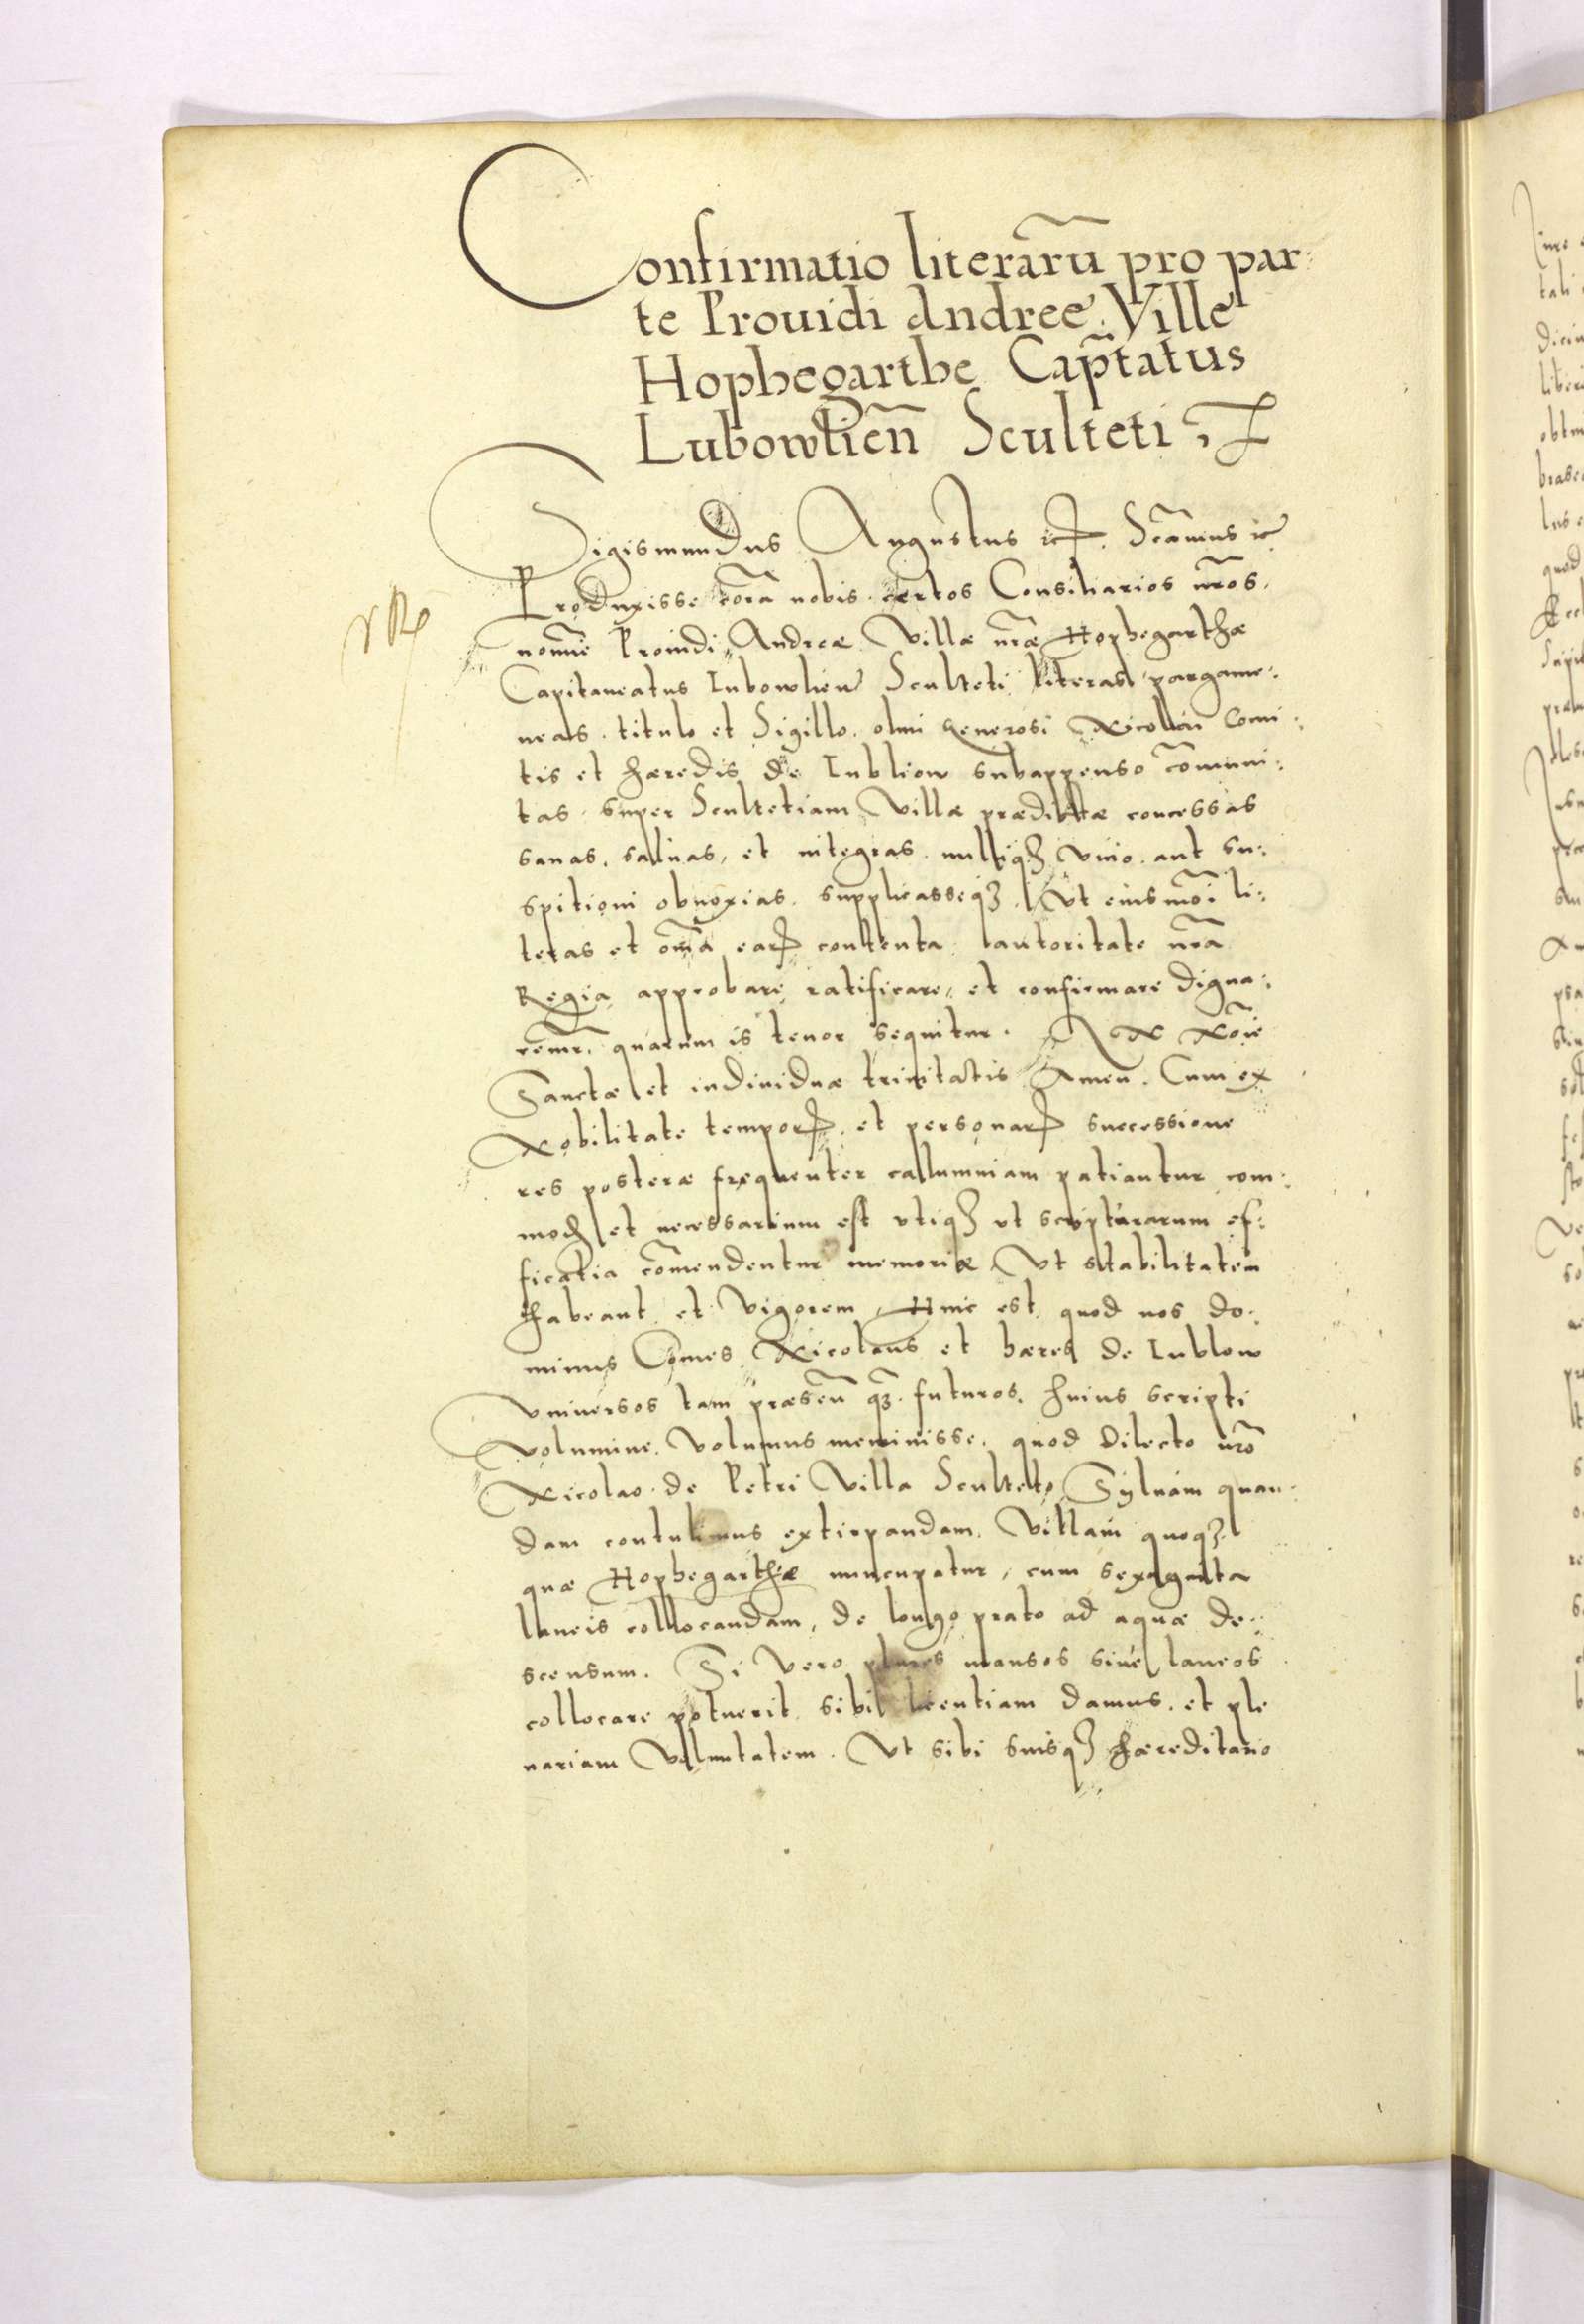 Confirmatio literarũ pro par:
te Prouidi Andree Ville
Hophegarthe Cap̃tatus
Lubowlieñ Sculteti
Sigismundus Augustus etc. Scãmus etc
Produxisse corã nobis certos Consiliarios nr̃os
nomĩe Prouidi Andreæ Villæ nr̃æ Hophegarthæ
Capitaneatus Lubowlieñ Sculteti literas pargame:
neas titulo et Sigillo olim Generosi Nicolai Comi:
tis et hæredis de Lubliow subappenso cõmuni:
tas super Scultetiam Villæ prædictæ concessas
sanas, saluas, et integras nulliqȝ vitio aut su:
spitioni obnoxias supplicasseqȝ Ut eiusmõi li:
teras et om̃ia earꝝ contenta autoritate nr̃a
Regia approbare ratificare, et confirmare digna:
remr̃, quarum is tenor sequitur. IN Nõie
Sanctæ et indiuiduæ trinitatis Amen. Cum ex
Nobilitate temporꝝ et personarꝝ successione
res posteræ frequenter callumniam patiantur com:
modꝫ et necessarium est vtiqȝ vt scripturarum ef:
ficatia cõmendentur memoriæ Ut stabilitatem
habeant et Vigorem Hinc est quod nos do:
minus Comes Nicolaus et hæres de Lublow
Vniuersos tam præseñ qȝ futuros huius scripti
volumine Volumus meminisse, quod Dilecto nr̃o
Nicolao de Petri Villa Sculteto Syluam quan:
dam contulimus extirpandam Villam quoqȝ
quæ Hophegarthæ nuncupatur, cum sexaginta
laneis collocandam, de longo prato ad aquæ de:
scensum. Si vero plures mansos siue laneos
collocare potuerit sibi licentiam damus et ple
nariam Voluntatem. Ut sibi suisqȝ hæreditario